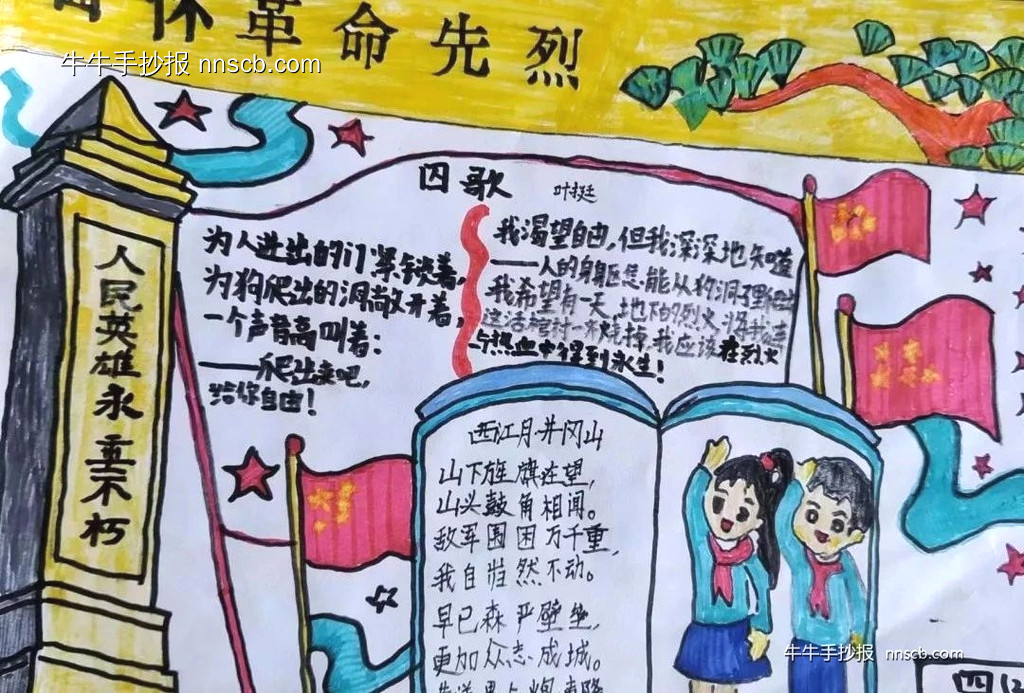 怀革命先烈
牛牛手抄报 nnscb.com
人民英雄永垂不朽
囚歌
叶挺
为人进出的门紧锁着,
为狗爬出的洞敞开着,
一个声音高叫着:
——爬出来吧,
给你自由!
我渴望自由,但我深深地知道
——人的身躯怎能从狗洞子里
我希望有一天,地下的烈火将我连
这活棺材一齐烧掉,我应该在烈火
与热血中得到永生!
西江月·井冈山
山下旌旗在望,
山头鼓角相闻。
敌军围困万千重,
我自岿然不动。
早已森严壁垒,
更加众志成城。
牛牛手抄报 nnscb.com